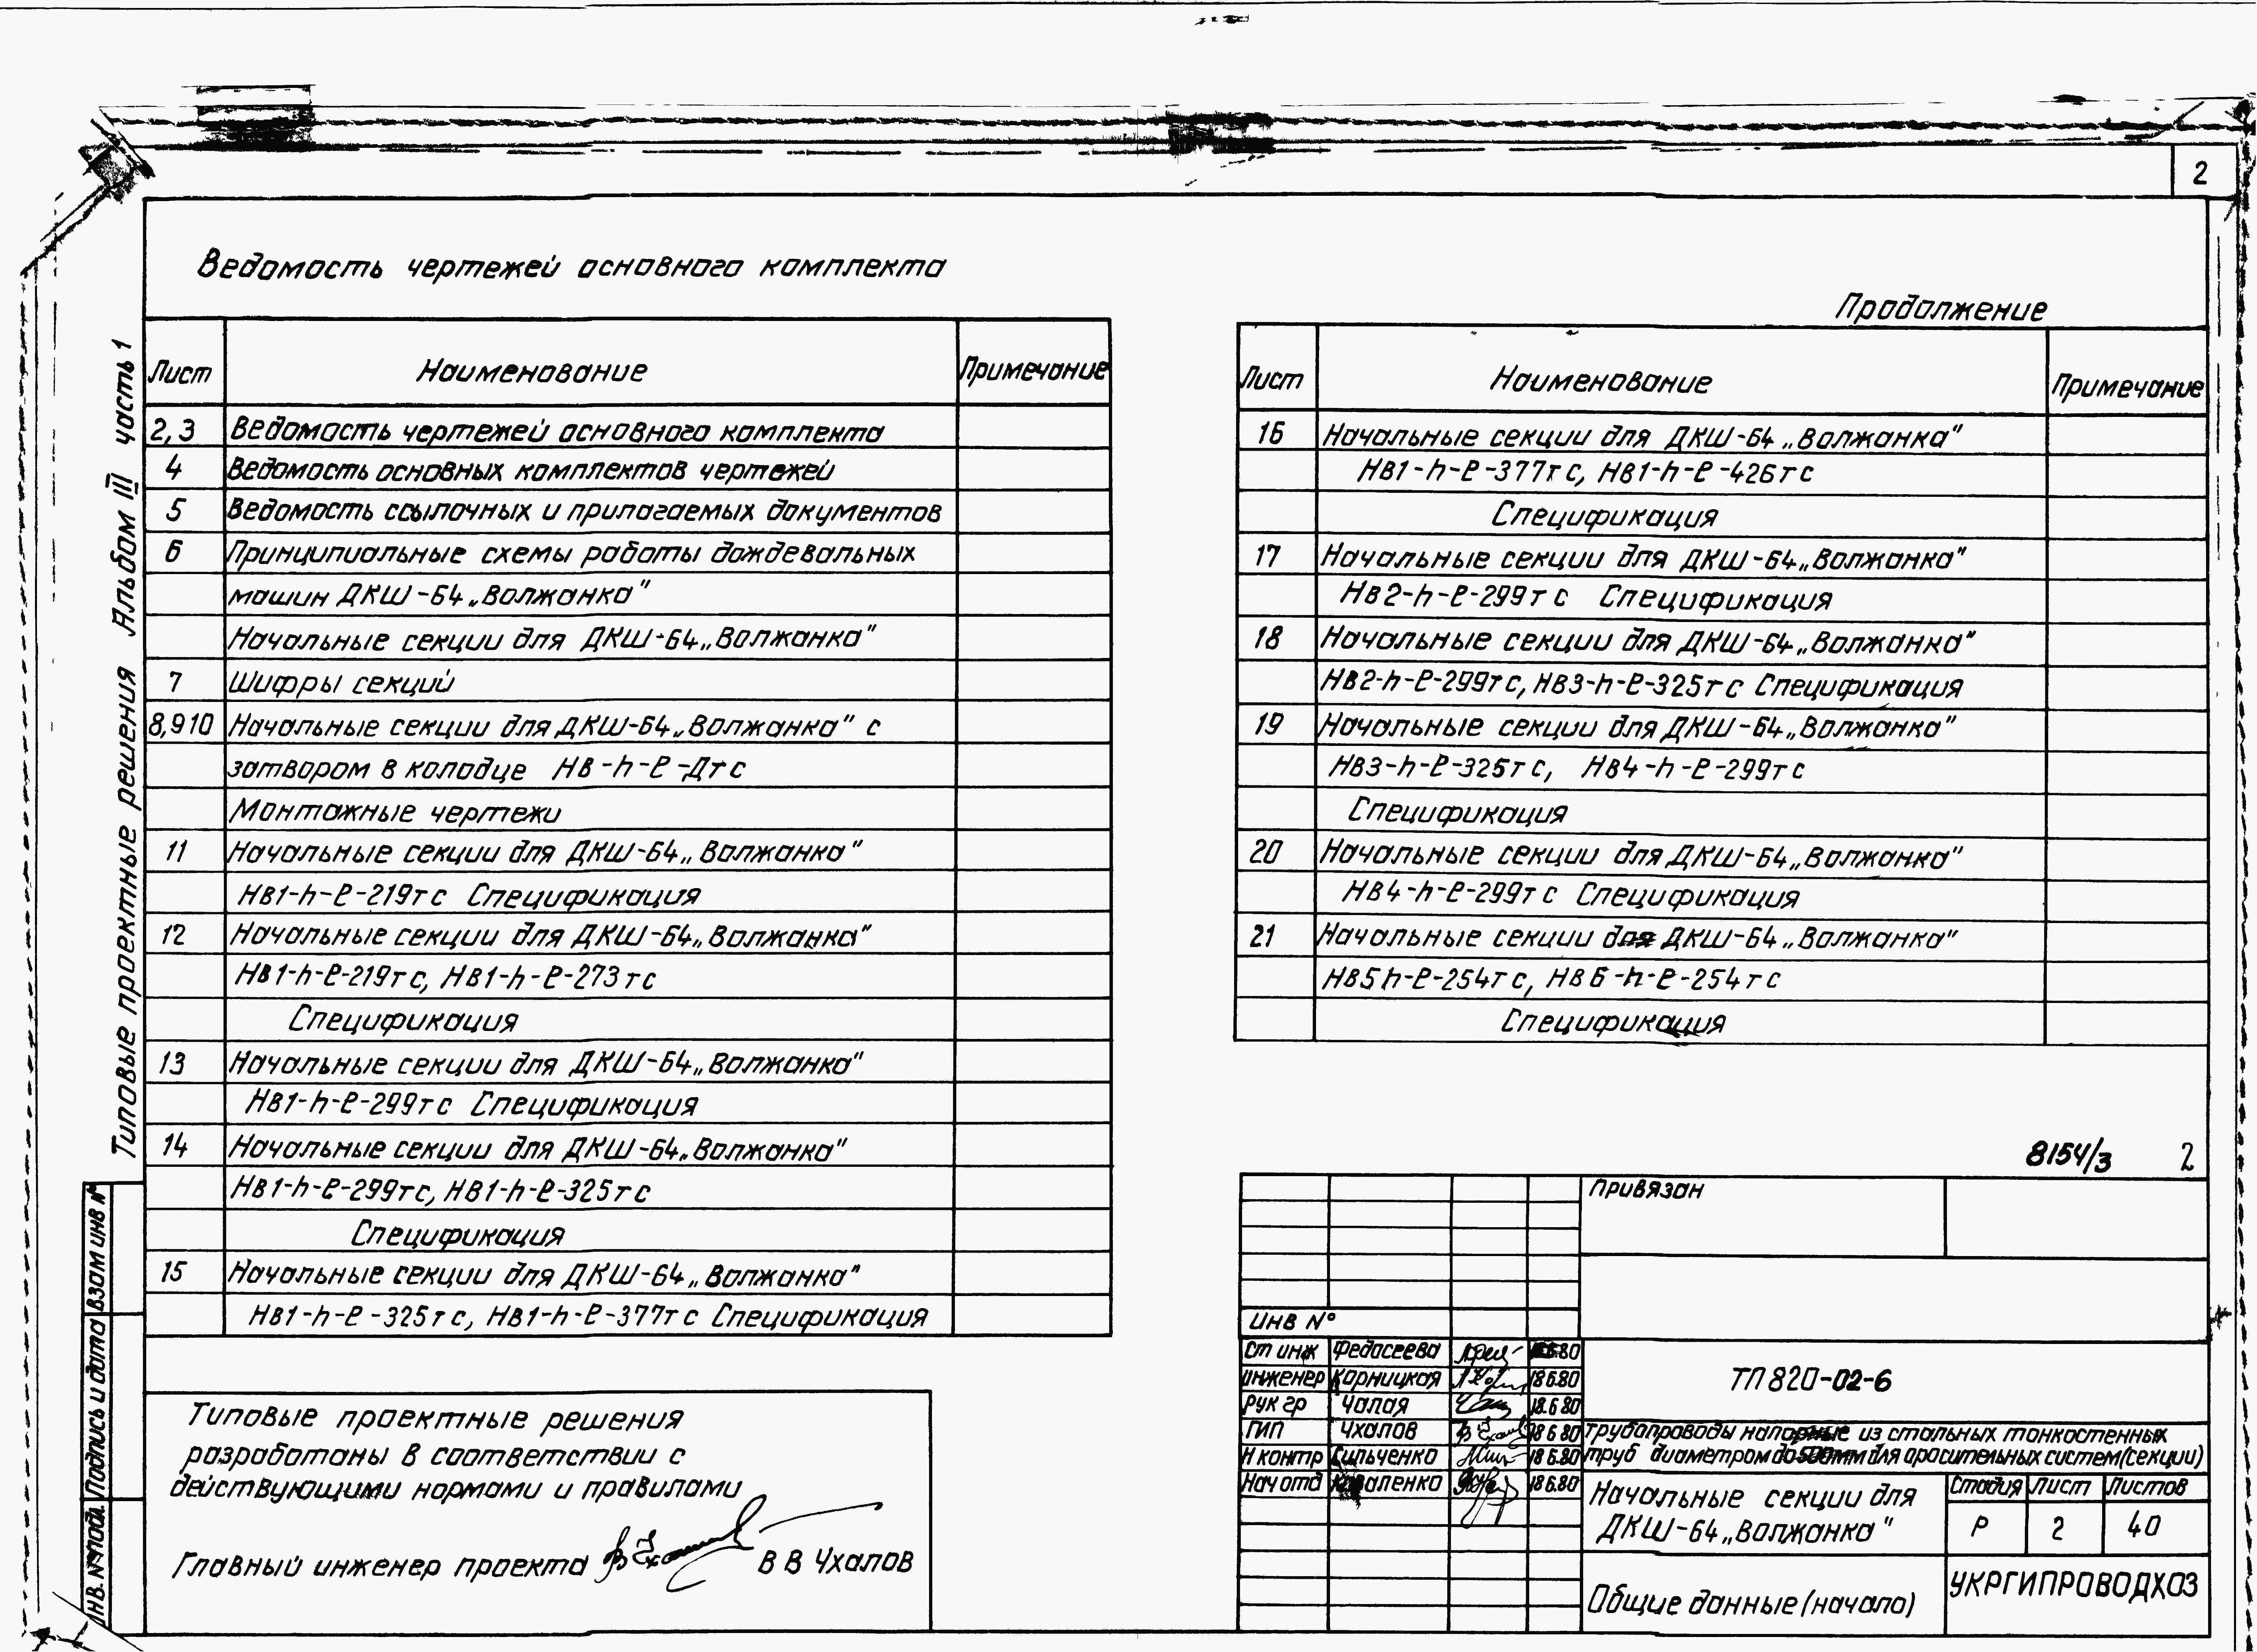 2
Типовые проектные решения Альбом III часть 1
Ведомость чертежей основного комплекта
Лист Наименование Примечание
2,3 Ведомость чертежей основного комплекта
4 Ведомость основных комплектов чертежей
5 Ведомость ссылочных и прилагаемых документов
6 Принципиальные схемы работы дождевальных
машин ДКШ-64 „Волжанка"
Начальные секции для ДКШ-64 „Волжанка"
7 Шифры секций
8,9 10 Начальные секции для ДКШ-64 „Волжанка" с
затвором в колодце Нв-h-ℓ-Дтс
Монтажные чертежи
11 Начальные секции для ДКШ-64 „Волжанка"
Нв1-h-ℓ-219тс Спецификация
12 Начальные секции для ДКШ-64 „Волжанка"
Нв1-h-ℓ-219тс, Нв1-h-ℓ-273тс
Спецификация
13 Начальные секции для ДКШ-64 „Волжанка"
Нв1-h-ℓ-299тс Спецификация
14 Начальные секции для ДКШ-64 „Волжанка"
Нв1-h-ℓ-299тс, Нв1-h-ℓ-325тс
Спецификация
15 Начальные секции для ДКШ-64 „Волжанка"
Нв1-h-ℓ-325тс, Нв1-h-ℓ-377тс Спецификация
Продолжение
Лист Наименование Примечание
16 Начальные секции для ДКШ-64 „Волжанка"
Нв1-h-ℓ-377тс, Нв1-h-ℓ-426тс
Спецификация
17 Начальные секции для ДКШ-64 „Волжанка"
Нв2-h-ℓ-299тс Спецификация
18 Начальные секции для ДКШ-64 „Волжанка"
Нв2-h-ℓ-299тс, Нв3-h-ℓ-325тс Спецификация
19 Начальные секции для ДКШ-64 „Волжанка"
Нв3-h-ℓ-325тс, Нв4-h-ℓ-299тс
Спецификация
20 Начальные секции для ДКШ-64 „Волжанка"
Нв4-h-ℓ-299тс Спецификация
21 Начальные секции для ДКШ-64 „Волжанка"
Нв5 h-ℓ-254тс, Нв6-h-ℓ-254тс
Спецификация
Типовые проектные решения
разработаны в соответствии с
действующими нормами и правилами
Главный инженер проекта В В Чхалов
8154/3 2
Привязан
Инв N°
Ст инж Федосеева 80
Инженер Корницкая 18.6.80
Рук гр Чалая 18.6.80
ГИП Чхалов 18.6.80
Н контр Сильченко 18.6.80
Нач отд Коваленко 18.6.80
ТП 820-02-6
Трубопроводы напорные из стальных тонкостенных
труб диаметром до 500мм для оросительных систем (секции)
Начальные секции для
ДКШ-64 „Волжанка"
Стадия Лист Листов
Р 2 40
Общие данные (начало)
УКРГИПРОВОДХОЗ
Инв. № подл. Подпись и дата Взам инв N°